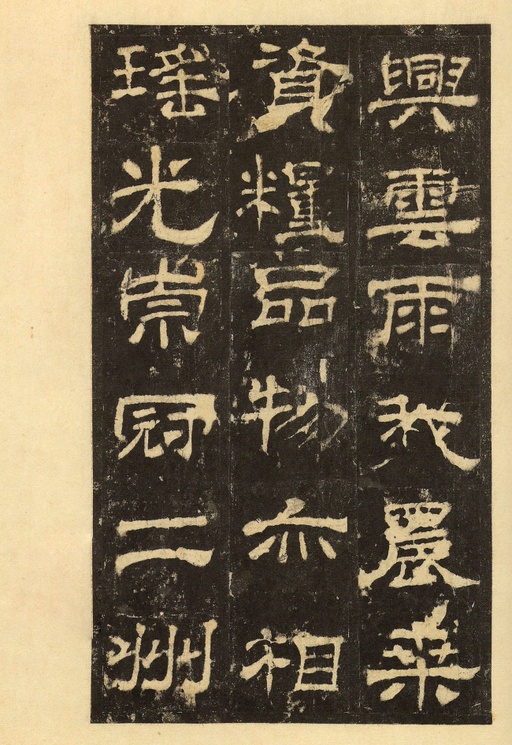 興雲雨我農桒
資糧品物亦相
瑤光崇冠二州